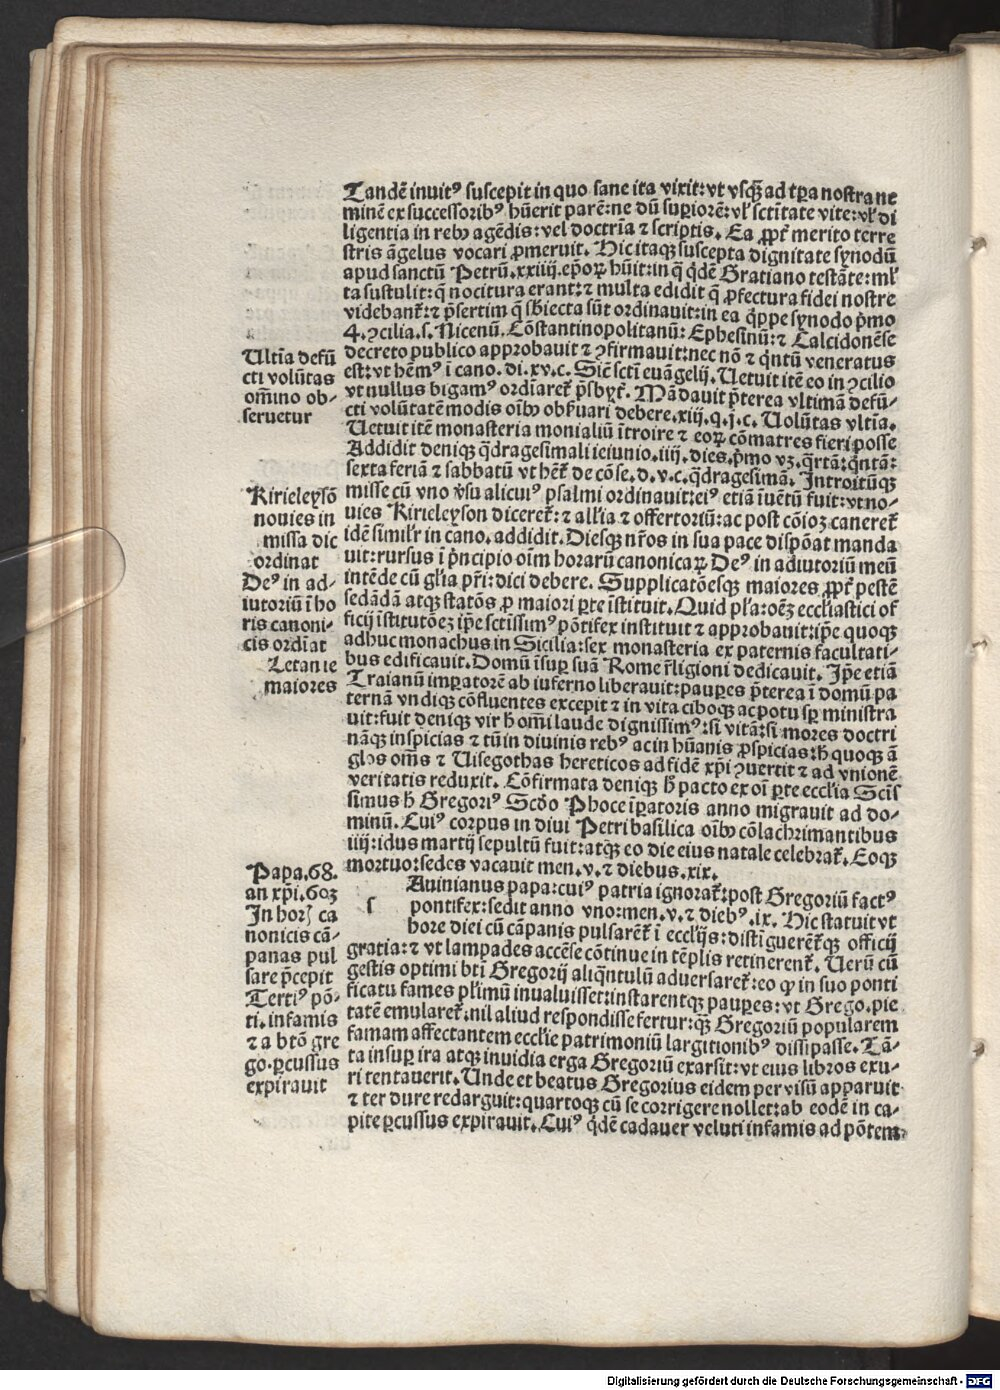 Tandē inuitꝰ suscepit in quo sane ita vixit: vt vsqꝫ ad tꝑa nostra ne
minē ex successoribꝰ hūerit parē: ne dū suꝑiorē: vl' sctītate vite: vl' di
ligentia in rebꝰ agēdis: vel doctria ⁊ scriptis. Ea ꝓpt̄ merito terre
stris āgelus vocari ꝓmeruit. Hic itaqꝫ suscepta dignitate synodū
apud sanctū Petrū .xxiiij. epoꝝ hūit: in q̄ qdē Gratiano testāte: ml'
ta sustulit: q̄ nocitura erant: ⁊ multa edidit q̄ ꝓfectura fidei nostre
videbant̄: ⁊ p̄sertim q̄ sbiecta sūt ordinauit: in ea q̄ppe synodo p̄mo
4. ꝯcilia .s. Nicenū. Cōstantinopolitanū: Ephesinū: ⁊ Calcidonēse
decreto publico approbauit ⁊ ꝯfirmauit: nec nō ⁊ qntū veneratus
est: vt hēmꝰ ī cano. di. xv. c. Sic̄ sctī euāgelij. Uetuit itē eo in ꝯcilio
vt nullus bigamꝰ ordīaret̄ p̄sbyt̄. Mādauit p̄terea vltimā defū-
cti volūtatē modis oībꝰ obseruari debere. xiij. q. j. c. Uolūtas vltīa.
Uetuit itē monasteria monialiū ītroire ⁊ eoꝝ cōmatres fieri posse
Addidit deniqꝫ q̄dragesimali ieiunio .iiij. dies. p̄mo vꝫ. q̄rtā: qntā:
sexta feriā ⁊ sabbatū vt hēt̄ de cōse. d. v. c. q̄dragesimā. Introitūqꝫ
misse cū vno v̄su alicuiꝰ psalmi ordinauit: eiꝰ etiā īuētū fuit: vt no-
uies Kirieleyson diceret̄: ⁊ all'ia ⁊ offertoriū: ac post cōioꝫ caneret̄
idē simil'r in cano. addidit. Diesqꝫ nr̄os in sua pace dispōat manda
uit: rursus ī p̄ncipio oīm horarū canonicaꝝ Deꝰ in adiutoriū meū
intēde cū gl'ia pr̄i: dici debere. Supplicatōesqꝫ maiores ꝓpt̄ pestē
sedādā atqꝫ statōs ꝓ maiori ꝑte īstituit. Quid pl'a: oēꝫ eccl'iastici of
ficij īstitutōeꝫ ip̄e sctīssimꝰ pōtifex instituit ⁊ approbauit: ip̄e quoqꝫ
adhuc monachus in Sicilia: sex monasteria ex paternis facultati-
bus edificauit. Domū īsuꝑ suā Rome r̄ligioni dedicauit. Ip̄e etiā
Traianū imꝑatorē ab iuferno liberauit: pauꝑes p̄terea ī domū pa
ternā vndiqꝫ cōfluentes excepit ⁊ in vita ciboqꝫ ac potu sꝑ ministra
uit: fuit deniqꝫ vir ħ omī laude dignissimꝰ: si vitā: si mores doctri
nāqꝫ inspicias ⁊ tū in diuinis rebꝰ ac in hūanis ꝓspicias: ħ quoqꝫ ā
glos om̄s ⁊ Uisegothas hereticos ad fidē xp̄i ꝯuertit ⁊ ad vnionē
veritatis reduxit. Cōfirmata deniqꝫ ħ pacto ex oī ꝑte eccl'ia Scīs
simus ħ Gregoriꝰ Scdo Phoce īꝑatoris anno migrauit ad do-
minū. Cuiꝰ corpus in diui Petri basilica oībꝰ cōlachrimantibus
iiij: idus martij sepultū fuit: atqꝫ eo die eius natale celebrat̄. Eoqꝫ
mortuo: sedes vacauit men. v. ⁊ diebus. xix.
s Auinianus papa: cuiꝰ patria ignorat̄: post Gregoriū factꝰ
pontifex: sedit anno vno: men. v. ⁊ diebꝰ. ix. Hic statuit vt
hore diei cū cāpanis pulsarēt̄ ī eccl'ijs: distīguerēt̄qꝫ officij
gratia: ⁊ vt lampades accēse cōtinue in tēplis retinerent̄. Uerū cū
gestis optimi btī Gregorij aliqntulū aduersaret̄: eo ꝙ in suo ponti
ficatu fames pl'imū inualuisset: instarentqꝫ pauꝑes: vt Grego. pie
tatē emularet̄. nil aliud respondisse fertur: qꝫ Gregoriū popularem
famam affectantem eccl'ie patrimoniū largitionibꝰ dissipasse. Tā-
ta insuꝑ ira atqꝫ inuidia erga Gregoriū exarsit: vt eius libros exu-
ri tentauerit. Unde et beatus Gregorius eidem per visū apparuit
⁊ ter dure redarguit: quartoqꝫ cū se corrigere nollet: ab eodē in ca-
pite ꝑcussus expirauit. Cuiꝰ q̄dē cadauer veluti infamis ad pōtem
Ultīa defū
cti volūtas
om̄ino ob-
seruetur
Kirieleysō
nouies in
missa dic
ordinat
Deꝰ in ad-
iutoriū ī ho
ris canoni-
cis ordīat
Letanie
maiores
Papa. 68.
an xp̄i. 603
In horꝭ ca
nonicis cā-
panas pul
sare p̄cepit
Tertiꝰ pō-
ti. infamis
⁊ a btō gre
go. ꝑcussus
expirauit
Digitalisierung gefördert durch die Deutsche Forschungsgemeinschaft - DFG